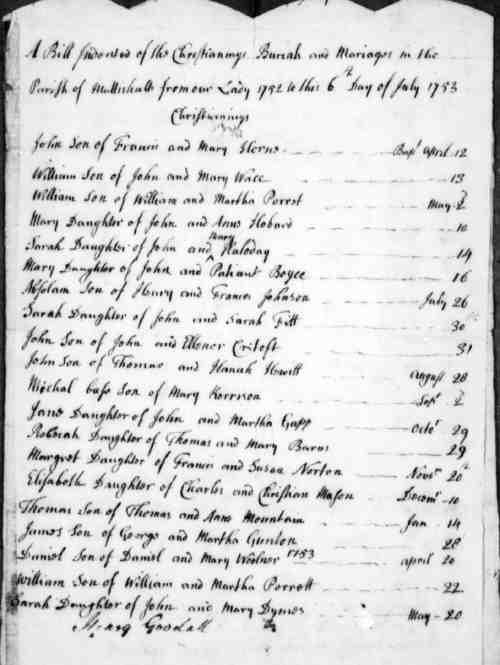 A Bill Indented of the Christianings Burials and Mariages in the
Parish of Mullishall from our Lady 1752 to this 6th Day of July 1753
Christianings
John Son of Francis and Mary Sterns Bapt April 12
William Son of John and Mary Wace 13
William Son of William and Martha Perest May 2
Mary Daughter of John and Anne Hobard 10
Sarah Daughter of John and Mary Haloday 14
Mary Daughter of John and Patiant Boyce 16
Son of Henry and Frances Johnson July 26
Sarah Daughter of John and Sarah Fitt 30
John Son of John and Ellener 31
John Son of Thomas and Hanah Hewitt August 28
Michal base Son of Mary Kerrison Sept 2
Jane Daughter of John and Martha Gapp Octor 29
Rebecah Daughter of Thomas and Mary Barns 29
Margret Daughter of Francis and Susan Norton Novr 20
Elizabeth Daughter of Charles and Christian Mason Decemr 10
Thomas Son of Thomas and Anne Mountain Jan 14
James Son of George and Martha Gunton 28
Daniel Son of Daniel and Mary Woolner 1753 april 20
William Son of William and Martha Perrett 22
Sarah Daughter of John and Mary Dymes May 20
Goodall